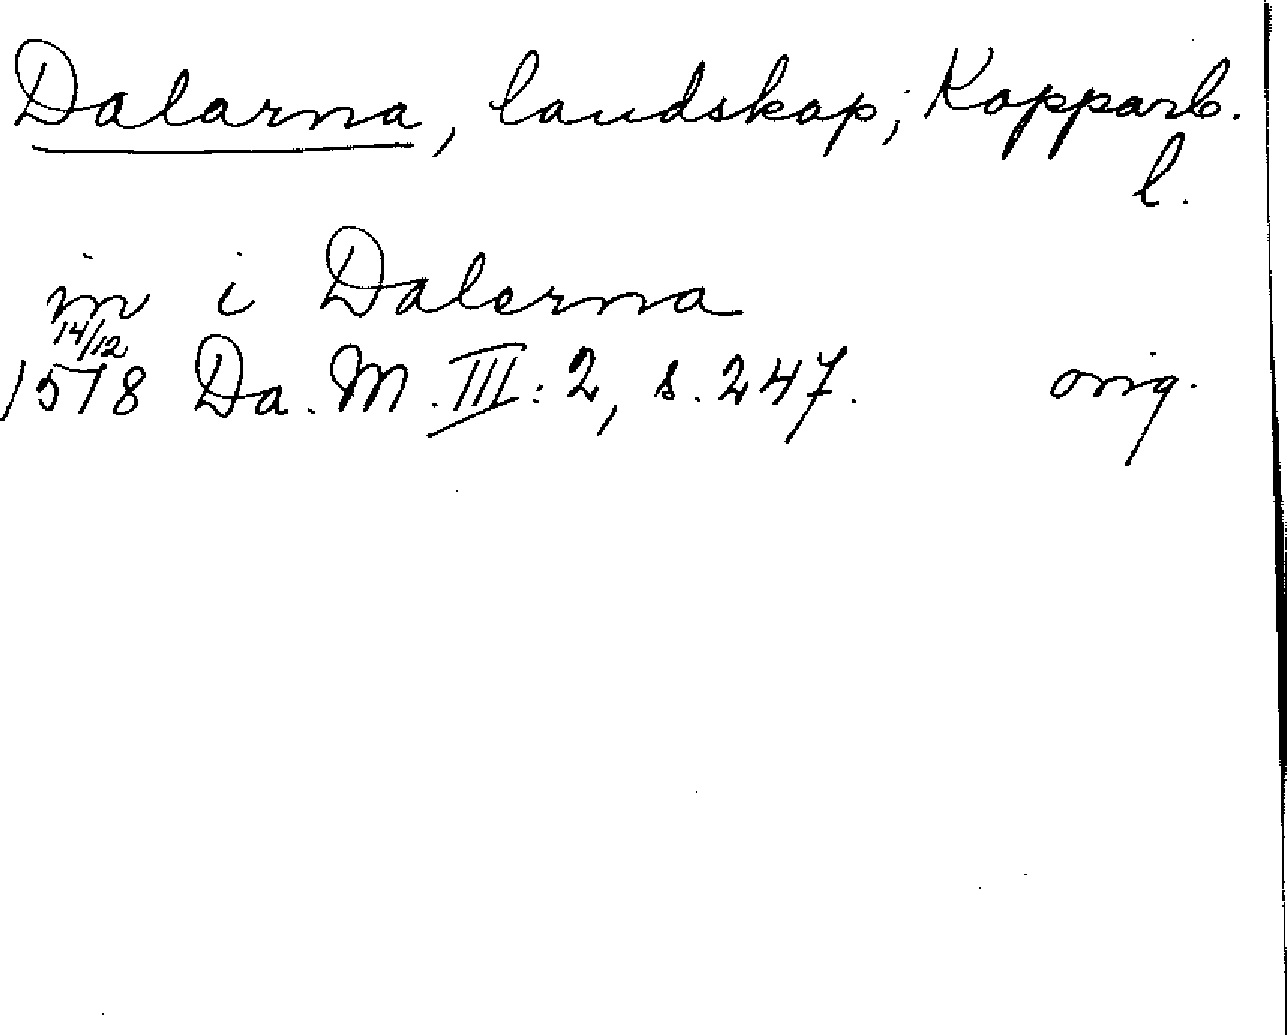 Dalarna, landskap; Kopparb.
l.
in i Dalerna
14/12
1578 Da. M. III: 2, s. 247. orig.